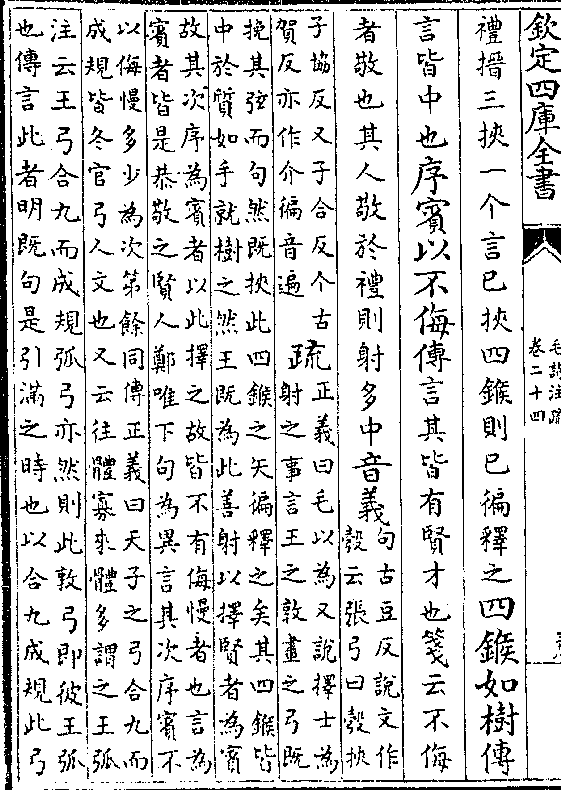 欽定四庫全書
毛詩注疏
卷二十四
禮搢三挾一个言已挾四鍭則已徧釋之四鍭如樹傳
言皆中也序賓以不侮傳言其皆有賢才也箋云不侮
者敬也其人敬於禮則射多中音義
句古豆反說文作
彀云張弓曰彀挾
子協反又子合反个古
賀反亦作介徧音遍
疏
正義曰毛以為又說擇士為
射之事言王之敦畫之弓既
挽其弦而句然既挾此四鍭之矢徧釋之矣其四鍭皆
中於質如手就樹之然王既為此善射以擇賢者為賓
故其次序為賓者以此擇之故皆不有侮慢者也言為
賓者皆是恭敬之賢人鄭唯下句為異言其次序賓不
以侮慢多少為次第餘同傳正義曰天子之弓合九而
成規皆冬官弓人文也又云往體寡來體多謂之王弧
注云王弓合九而成規弧弓亦然則此敦弓即彼王弧
也傳言此者明既句是引滿之時也以合九成規此弓